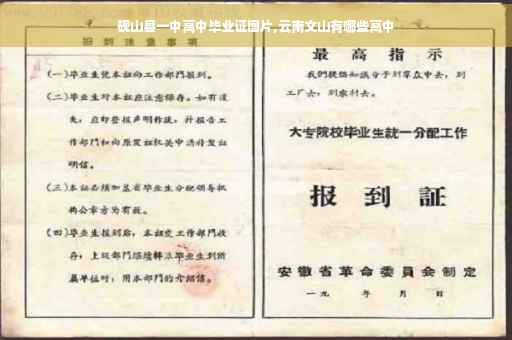 砚山县一中高中毕业证图片,云南文山有哪些高中
报到注意事项
(一)毕业生凭本证向工作部门报到。
(二)毕业生对本证应注意保存。如有遗
失，应即登报声明作废，并报告工
作部门和向原发证机关申请补发证
明信。
(三)本证必须加盖省毕业生分配领导机
构公章方为有效。
(四)毕业生报到后，本证交工作部门收
存；上级部门继续转派毕业生到所
属单位时，用本部门的介绍信。
最高指示
我们提倡知识分子到群众中去，到
工厂去，到农村去。
大专院校毕业生統一分配工作
报到証
安徽省革命委員会制定
一九 年 月 日